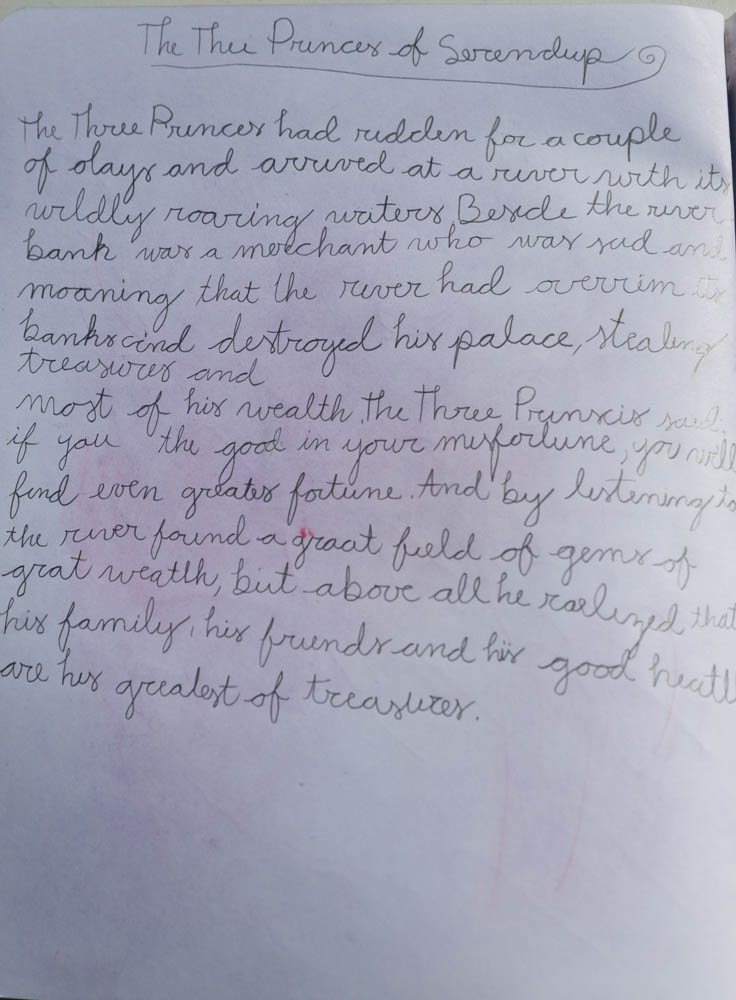 The Thee Princes of Serendip
The Three Princes had ridden for a couple
of days and arrived at a river with its
wildly roaring waters. Beside the river
bank was a merchant who was sad and
moaning that the river had overrim its
banks and destroyed his palace, stealing
treasures and
most of his wealth. The Three Prinscis said.
if you the good in your misfortune, you will
find even greater fortune. And by listening to
the river found a graat field of gems of
grat weatlh, but above all he raelized that
his family, his friends and his good heatl
are his greatest of treasures.